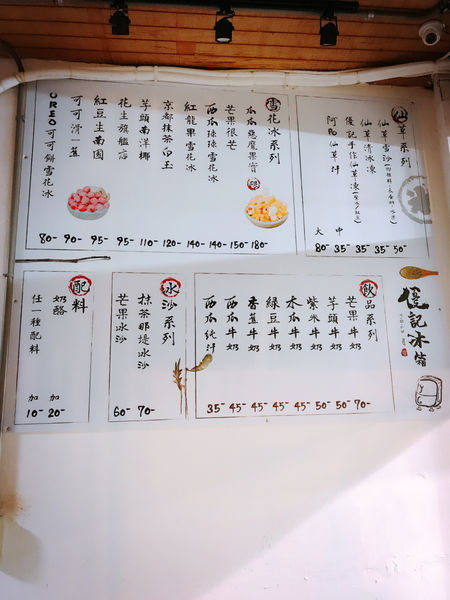 仙草系列
仙草雪沙 50-
仙草清冰凍 35-
優記手作仙草凍 35-
阿Po仙草汁 中 35- 大 80-
雪花冰系列
瓜瓜惡魔果實 180-
芒果很芒 150-
西瓜珠珠雪花冰 140-
紅龍果雪花冰 140-
京都抹茶白玉 120-
芋頭南洋椰 110-
花生旗艦店 95-
紅豆生南國 95-
可可滑一蕉 90-
OREO可可餅雪花冰 80-
優記冰箱
飲品系列
芒果牛奶 70-
芋頭牛奶 50-
紫米牛奶 50-
木瓜牛奶 45-
綠豆牛奶 45-
香蕉牛奶 45-
西瓜牛奶 45-
西瓜純汁 35-
冰沙系列
抹茶那堤冰沙 70-
芒果冰沙 60-
配料
奶酪 加20-
任一種配料 加10-